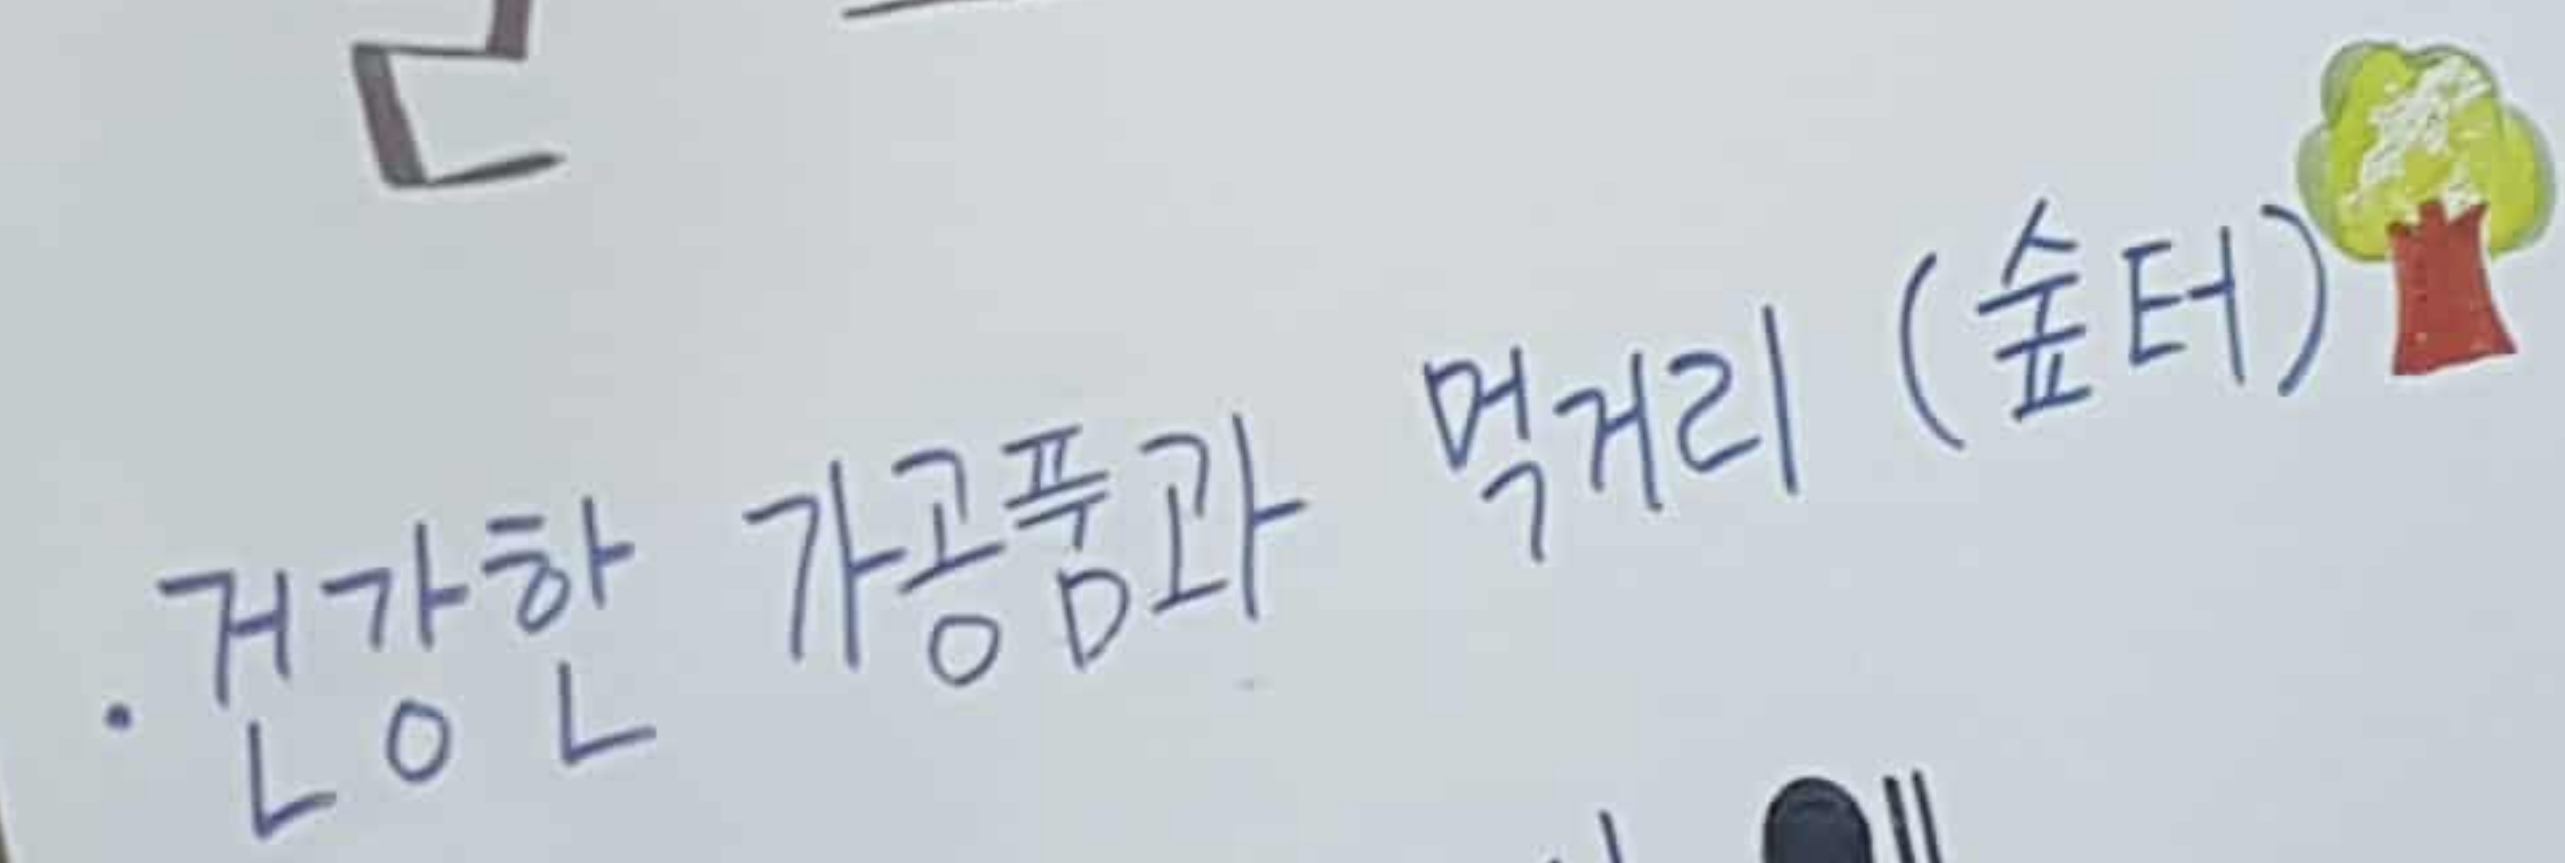 · 건강한 가공품과 먹거리 (숲터)